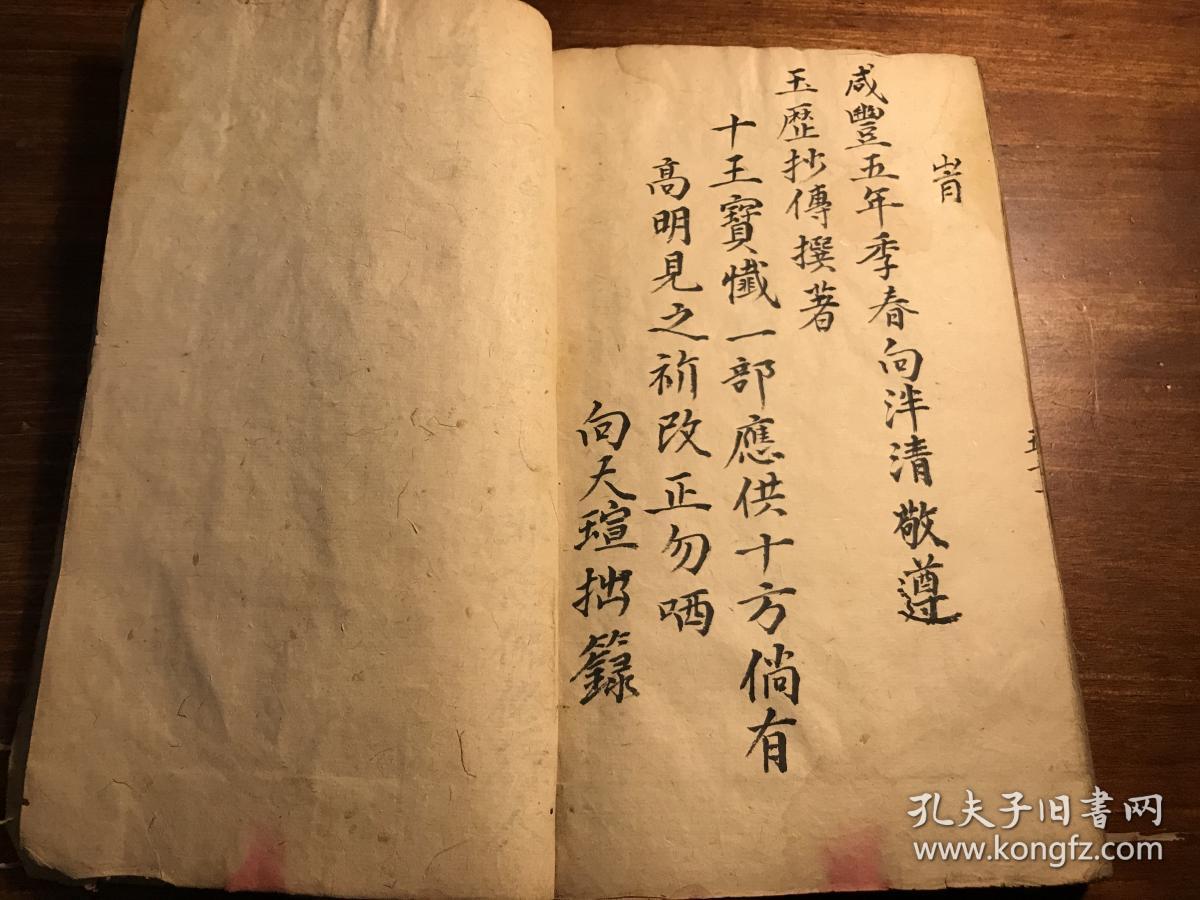 咸豐五年季春向泮清敬遵
玉歷抄傳撰著
十王寶懺一部應供十方倘有
高明見之祈改正勿哂
向天瑄拙籙
孔夫子旧书网
www.kongfz.com